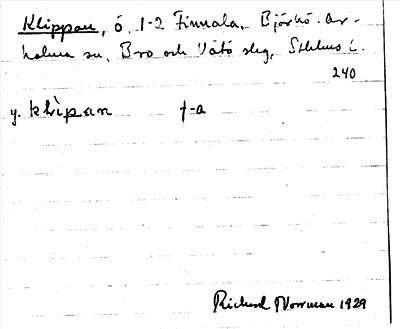 Klippan, ö, 1-2 Finnala, Björkö-Ar-
holma sn, Bro och Vätö slg, Sthlms l.
240
y. klìpan f-a
Rickard Norrman 1929